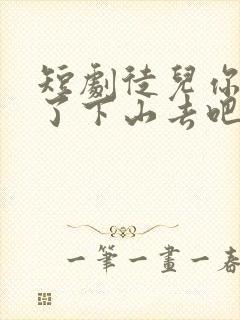 短劇徒兒你
了下山去吧
一筆一畫一春